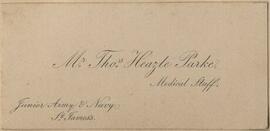 Mr. Thos. Heazle Parke.
Medical Staff.
Junior Army & Navy.
St. James's.